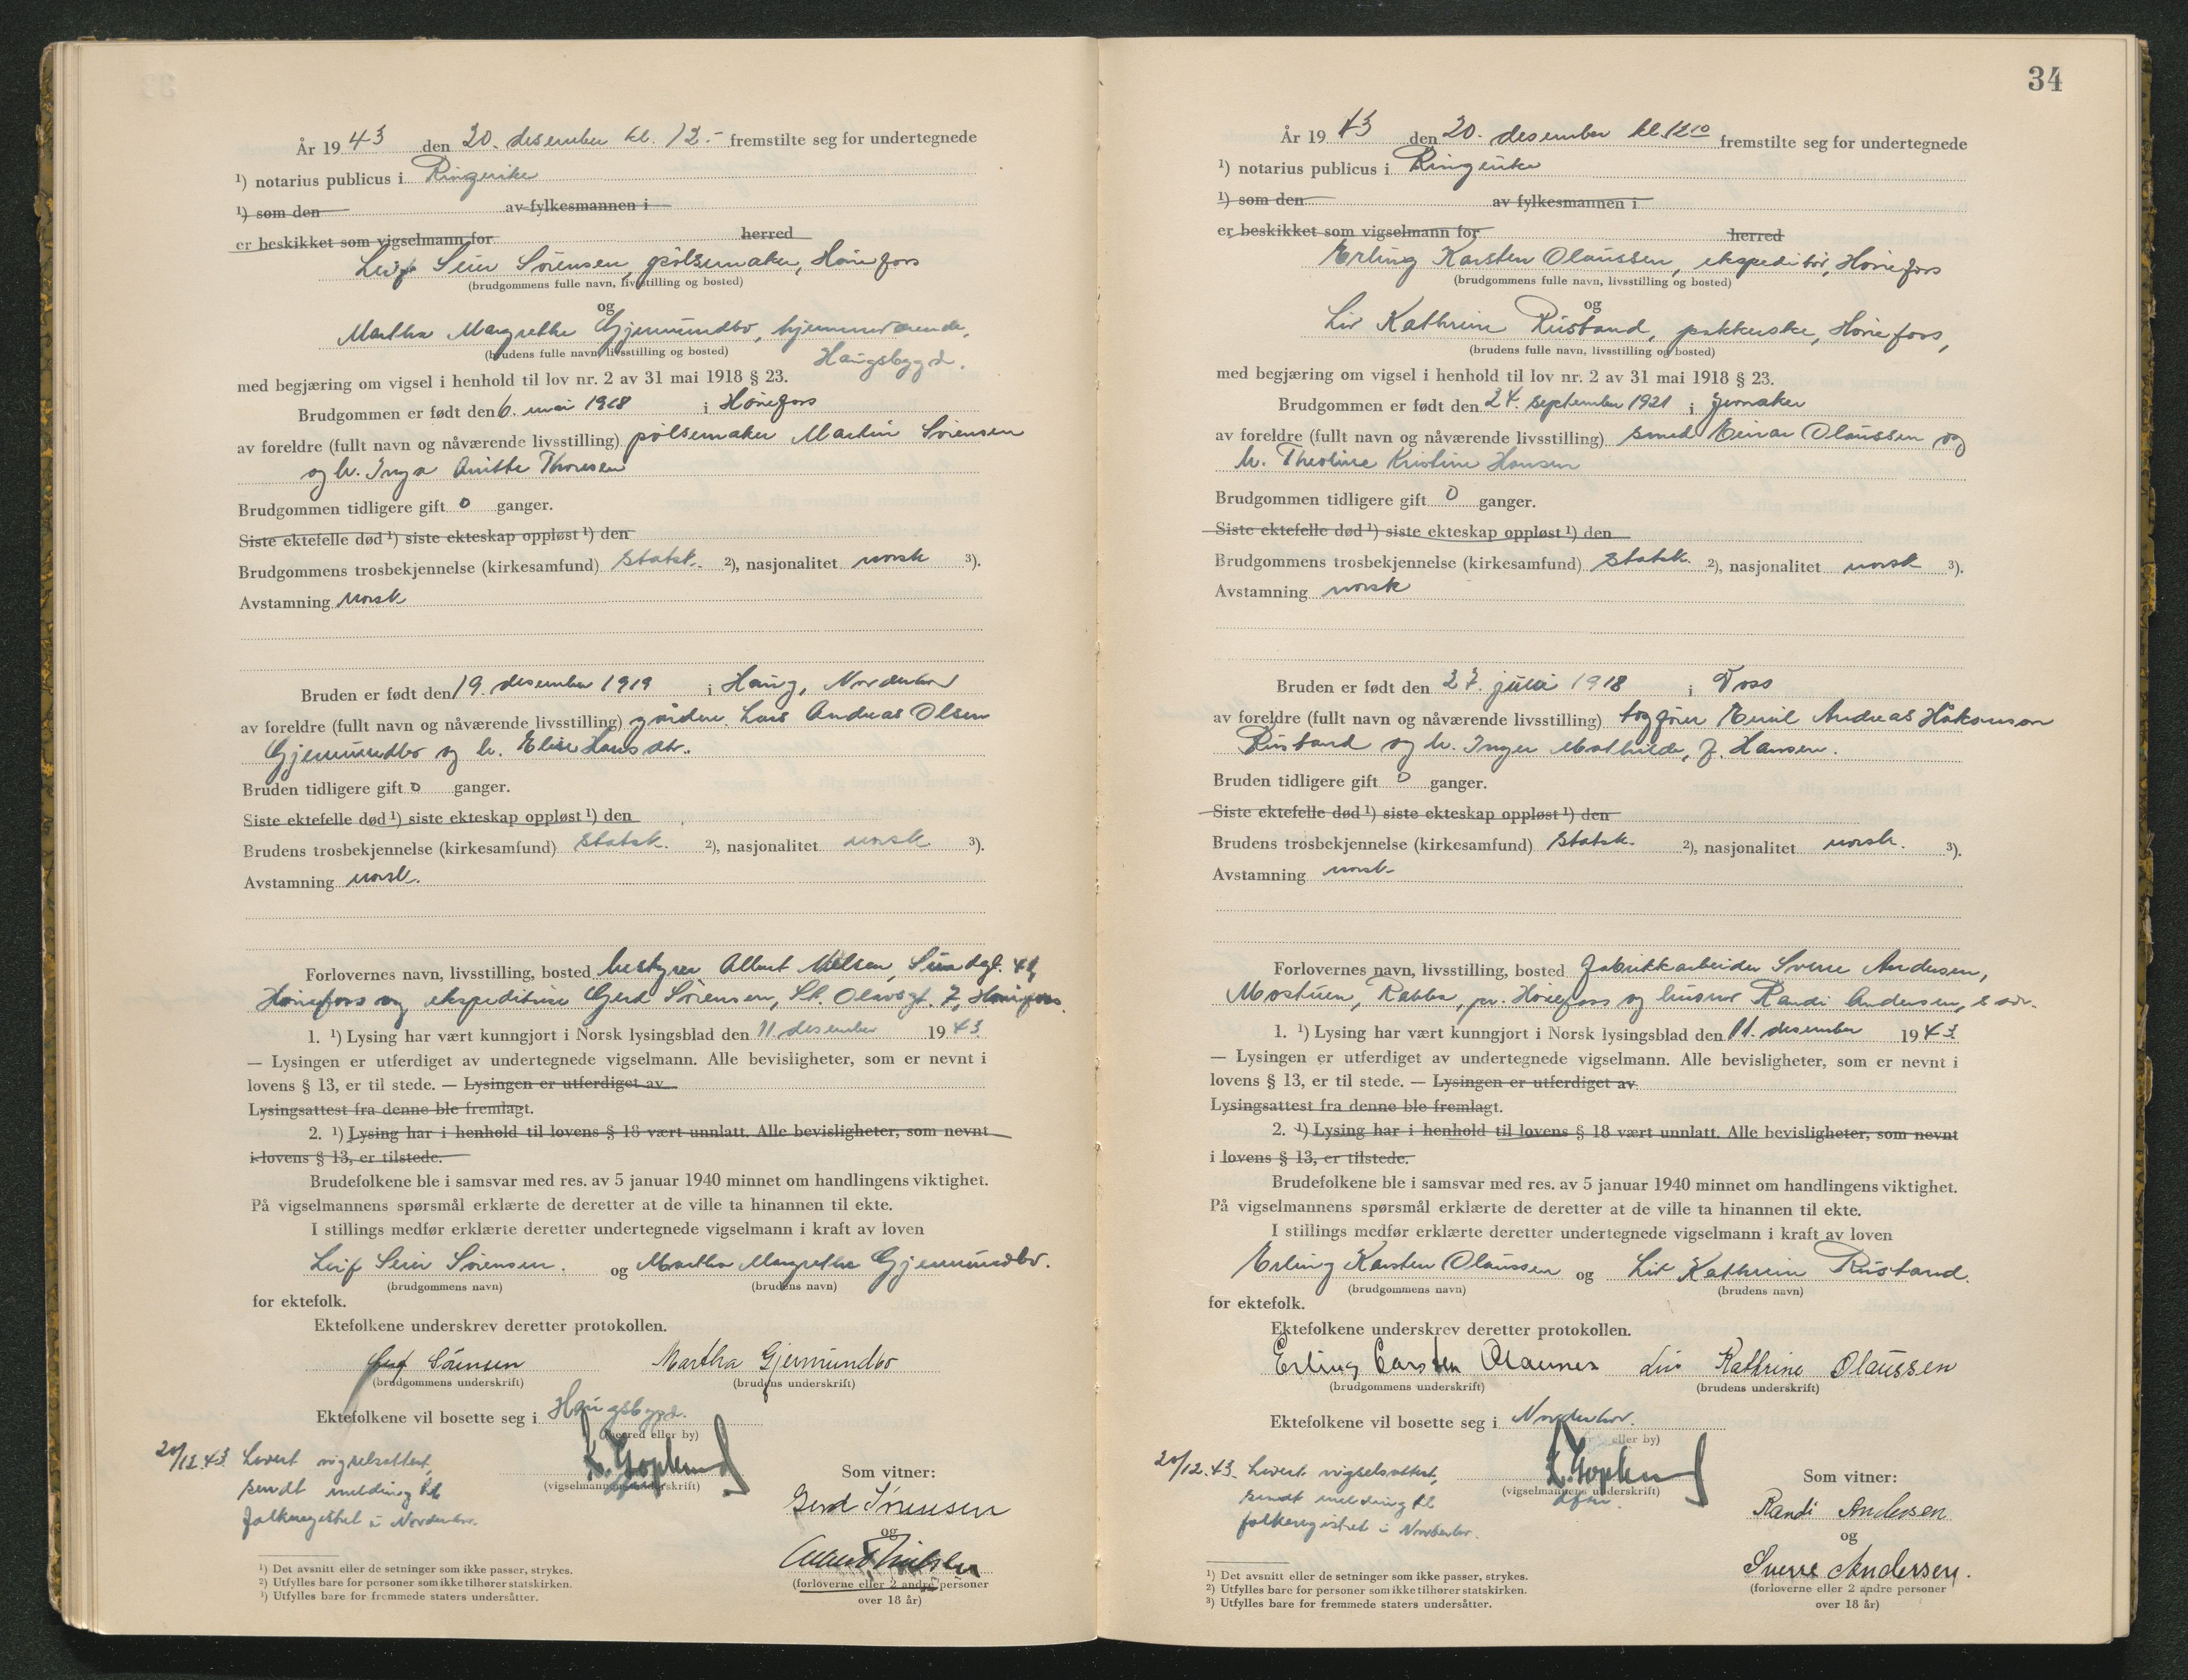 År 19 43 den 20. desember kl. 12.- fremstilte seg for undertegnede
¹) notarius publicus i Ringerike
¹) som den av fylkesmannen i
er beskikket som vigselmann for herred
Leif Seier Sørensen, pølsemaker, Hønefoss
(brudgommens fulle navn, livsstilling og bosted)
og
Martha Margrethe Gjermundbo, hjemmeværende,
(brudens fulle navn, livsstilling og bosted) Haugsbygd.
med begjæring om vigsel i henhold til lov nr. 2 av 31 mai 1918 § 23.
Brudgommen er født den 6. mai 1918 i Hønefoss
av foreldre (fullt navn og nåværende livsstilling) pølsemaker Martin Sørensen
og h. Inga Anitte Thoresen
Brudgommen tidligere gift 0 ganger.
Siste ektefelle død ¹) siste ekteskap oppløst ¹) den
Brudgommens trosbekjennelse (kirkesamfund) Statsk. ²), nasjonalitet norsk ³).
Avstamning norsk
Bruden er født den 19. desember 1919 i Haug, Norderhov
av foreldre (fullt navn og nåværende livsstilling) gårdbr. Lars Andreas Olsen
Gjermundbo og h. Elise Hansdtr.
Bruden tidligere gift 0 ganger.
Siste ektefelle død ¹) siste ekteskap oppløst ¹) den
Brudens trosbekjennelse (kirkesamfund) Statsk. ²), nasjonalitet norsk ³).
Avstamning norsk.
Forlovernes navn, livsstilling, bosted bestyrer Albert Nilsen, Sundgt. 41,
Hønefoss og ekspeditrise Gerd Sørensen, St. Olavsgt. 7, Hønefoss.
1. ¹) Lysing har vært kunngjort i Norsk lysingsblad den 11. desember 19 43
— Lysingen er utferdiget av undertegnede vigselmann. Alle bevisligheter, som er nevnt i
lovens § 13, er til stede. — Lysingen er utferdiget av
Lysingsattest fra denne ble fremlagt.
2. ¹) Lysing har i henhold til lovens § 18 vært unnlatt. Alle bevisligheter, som nevnt
i lovens § 13, er tilstede.
Brudefolkene ble i samsvar med res. av 5 januar 1940 minnet om handlingens viktighet.
På vigselmannens spørsmål erklærte de deretter at de ville ta hinannen til ekte.
I stillings medfør erklærte deretter undertegnede vigselmann i kraft av loven
Leif Seier Sørensen. og Martha Margrethe Gjermundbo.
(brudgommens navn) (brudens navn)
for ektefolk.
Ektefolkene underskrev deretter protokollen.
Leif Sørensen Martha Gjermundbo
(brudgommens underskrift) (brudens underskrift)
Ektefolkene vil bosette seg i Haugsbygd.
(herred eller by)
20/12.43 Levert vigselsattest,
sendt melding til
folkeregistret i Norderhov.
(vigselmannens underskrift)
Som vitner:
Gerd Sørensen
og
Albert Nilsen
(forloverne eller 2 andre personer
over 18 år)
¹) Det avsnitt eller de setninger som ikke passer, strykes.
²) Utfylles bare for personer som ikke tilhører statskirken.
³) Utfylles bare for fremmede staters undersåtter.
34
År 19 43 den 20. desember kl. 12¹⁰ fremstilte seg for undertegnede
¹) notarius publicus i Ringerike
¹) som den av fylkesmannen i
er beskikket som vigselmann for herred
Erling Karsten Olaussen, ekspeditør, Hønefoss
(brudgommens fulle navn, livsstilling og bosted)
og
Liv Kathrine Rustand, pakkerske, Hønefoss,
(brudens fulle navn, livsstilling og bosted)
med begjæring om vigsel i henhold til lov nr. 2 av 31 mai 1918 § 23.
Brudgommen er født den 24. september 1921 i Jevnaker
av foreldre (fullt navn og nåværende livsstilling) smed Einar Olaussen og
h. Theoline Kristine Hansen
Brudgommen tidligere gift 0 ganger.
Siste ektefelle død ¹) siste ekteskap oppløst ¹) den
Brudgommens trosbekjennelse (kirkesamfund) Statsk. ²), nasjonalitet norsk ³).
Avstamning norsk
Bruden er født den 27. juli 1918 i Voss
av foreldre (fullt navn og nåværende livsstilling) togfører Emil Andreas Håkonson
Rustand og h. Inger Mathilde, f. Hansen.
Bruden tidligere gift 0 ganger.
Siste ektefelle død ¹) siste ekteskap oppløst ¹) den
Brudens trosbekjennelse (kirkesamfund) Statsk. ²), nasjonalitet norsk. ³).
Avstamning norsk
Forlovernes navn, livsstilling, bosted fabrikkarbeider Sverre Andersen,
Mostuen, Rabba, pr. Hønefoss og husmor Randi Andersen,
1. ¹) Lysing har vært kunngjort i Norsk lysingsblad den 11. desember 19 43
— Lysingen er utferdiget av undertegnede vigselmann. Alle bevisligheter, som er nevnt i
lovens § 13, er til stede. — Lysingen er utferdiget av
Lysingsattest fra denne ble fremlagt.
2. ¹) Lysing har i henhold til lovens § 18 vært unnlatt. Alle bevisligheter, som nevnt
i lovens § 13, er tilstede.
Brudefolkene ble i samsvar med res. av 5 januar 1940 minnet om handlingens viktighet.
På vigselmannens spørsmål erklærte de deretter at de ville ta hinannen til ekte.
I stillings medfør erklærte deretter undertegnede vigselmann i kraft av loven
Erling Karsten Olaussen og Liv Kathrine Rustand.
(brudgommens navn) (brudens navn)
for ektefolk.
Ektefolkene underskrev deretter protokollen.
Erling Carsten Olaussen Liv Kathrine Olaussen
(brudgommens underskrift) (brudens underskrift)
Ektefolkene vil bosette seg i Norderhov.
eller by)
20/12.43. Levert vigselsattest,
sendt melding til
folkeregistret i Norderhov.
(vigselmannens underskrift)
Som vitner:
Randi Andersen
og
Sverre Andersen.
(forloverne eller 2 andre personer
over 18 år)
¹) Det avsnitt eller de setninger som ikke passer, strykes.
²) Utfylles bare for personer som ikke tilhører statskirken.
³) Utfylles bare for fremmede staters undersåtter.